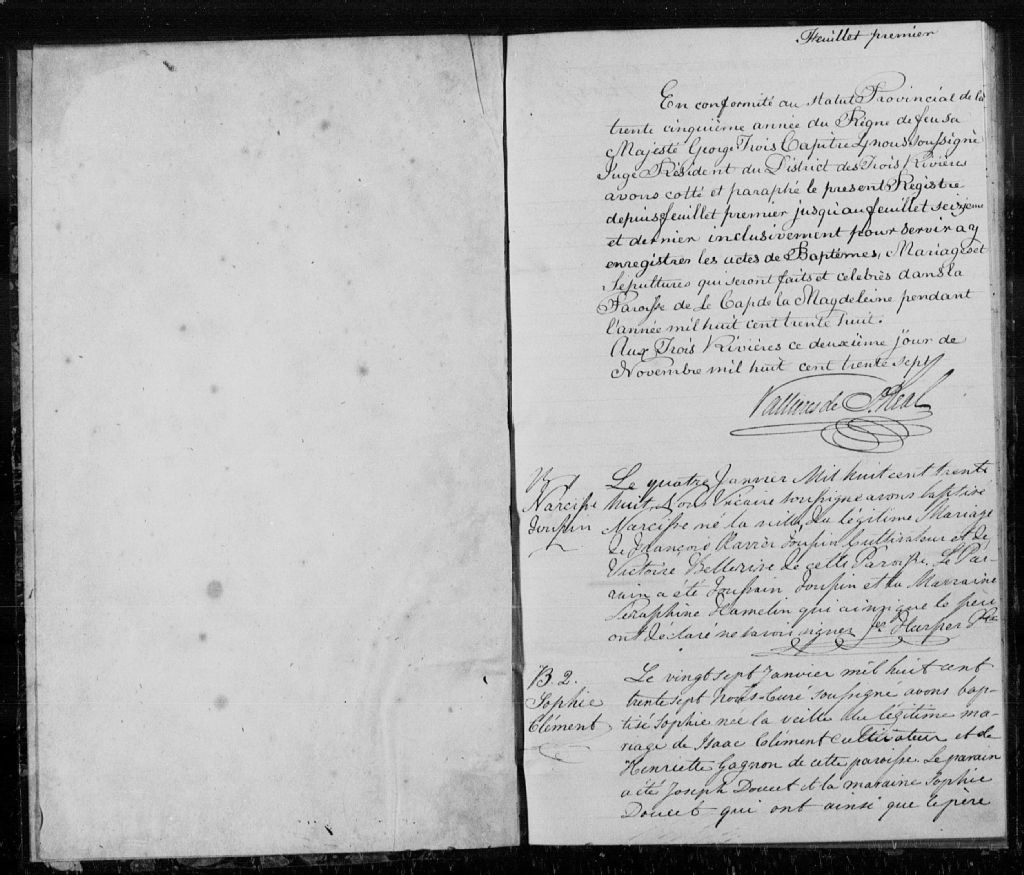 Feuillet premier
En conformité au Statut Provincial de la
trente cinquième année du Règne de feu sa
Majesté George Trois Capitre 4 nous soussigné
Juge Résident du District des Trois Rivières
avons cotté et paraphé le present Registre
depuis feuillet premier jusqu'au feuillet seizieme
et dernier inclusivement pour servir a y
enregistrer les actes de Baptêmes, Mariages et
Sépultures qui seront faits et celebrés dans la
Paroisse de le Cap de la Magdeleine pendant
l'année mil huit cent trente huit.
Aux Trois Rivières ce deuxième jour de
Novembre mil huit cent trente sept
Vallieres de St. Real
Narcisse
Toupin
Le quatre Janvier Mil huit cent trente
huit Nous Vicaire soussigné avons baptisé
Narcisse né la veille du légitime Mariage
de François Xavier Toupin Cultivateur et de
Victoire Bellerive de cette Paroisse. Le Par-
rain a été Toupin et la Marraine
Séraphine Hamelin qui ainsi que le père
ont déclaré ne savoir signer. Harper Ptre
B. 2.
Sophie
Clément
Le vingt sept Janvier mil huit cent
trente sept nous Curé soussigné avons bap-
tisé Sophie née la veille du légitime ma-
riage de Isaac Clément cultivateur et de
Henriette Gagnon de cette paroisse. Le parain
a été Joseph Doucet et la maraine Sophie
Doucet qui ont ainsi que le père